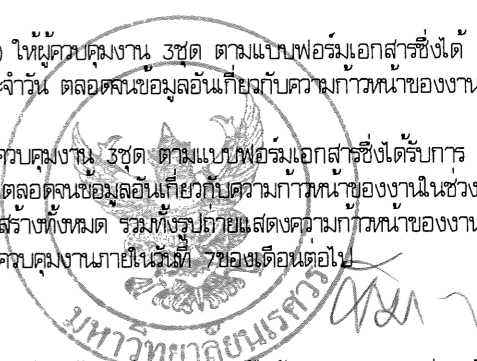 ) ให้ผู้ควบคุมงาน 3ชุด ตามแบบฟอร์มเอกสารซึ่งได้
ะจำวัน ตลอดจนข้อมูลอันเกี่ยวกับความก้าวหน้าของงาน
ควบคุมงาน 3ชุด ตามแบบฟอร์มเอกสารซึ่งได้รับการ
ตลอดจนข้อมูลอันเกี่ยวกับความก้าวหน้าของงานในช่วง
สร้างทั้งหมด รวมทั้งรูปถ่ายแสดงความก้าวหน้าของงาน
ควบคุมงานภายในวันที่ 7ของเดือนต่อไป
มหาวิทยาลัยนเรศวร